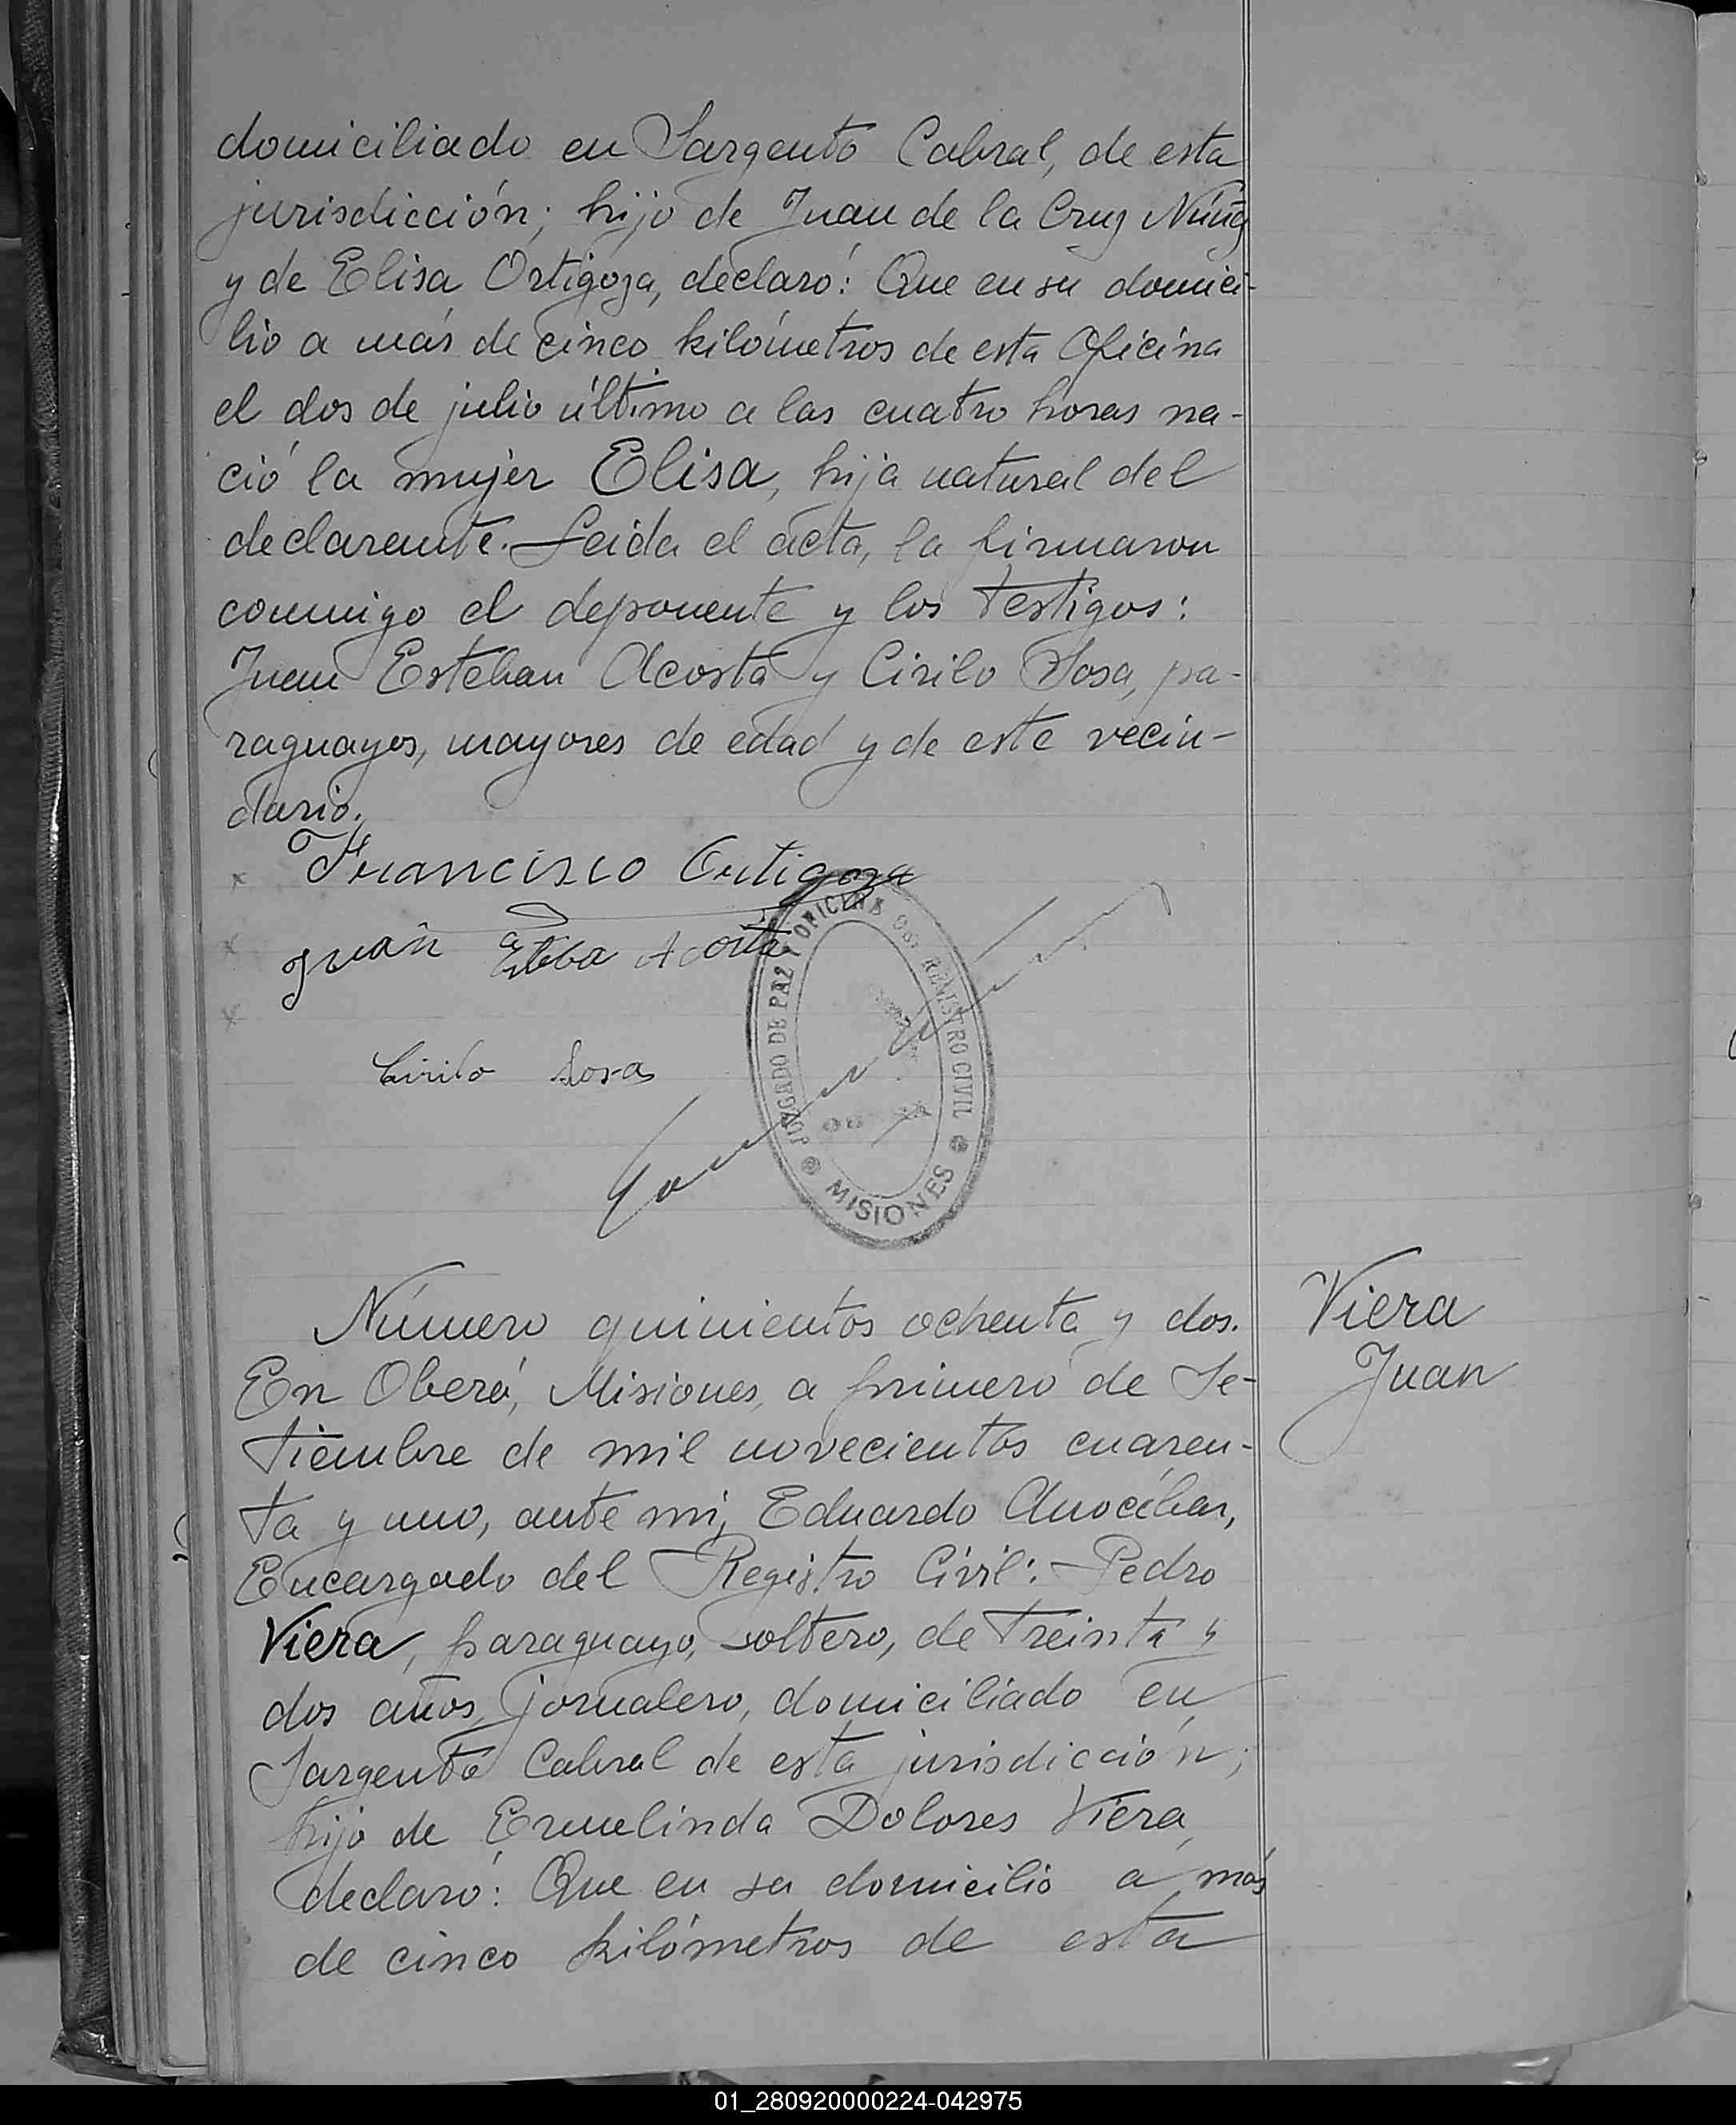 domiciliado en Sargento Cabral, de esta
jurisdicción; hijo de Juan de la Cruz Núñez
y de Elisa Ortigoza, declaró: Que en su domici-
lio a más de cinco kilómetros de esta Oficina
el dos de julio último a las cuatro horas na-
ció la mujer Elisa, hija natural del
declarante. Leida el acta, la firmaron
conmigo el deponente y los testigos:
Juan Esteban Acosta y Cirilo Sosa, pa-
raguayos, mayores de edad y de este vecin-
dario.
Francisco Ortigoza
Juan Esteba Acosta
Cirilo Sosa
JUZGADO DE PAZ Y OFICINA DEL REGISTRO CIVIL
MISIONES
Número quinientos ochenta y dos.
En Oberá, Misiones, a primero de Se-
tiembre de mil novecientos cuaren-
ta y uno, ante mí, Eduardo Anocíbar,
Encargado del Registro Civil: Pedro
Viera, paraguayo, soltero, de treinta y
dos años, jornalero, domiciliado en
Sargento Cabral de esta jurisdicción;
hijo de Ermelinda Dolores Viera,
declaró: Que en su domicilio a más
de cinco kilómetros de esta
Viera
Juan
01_280920000224-042975